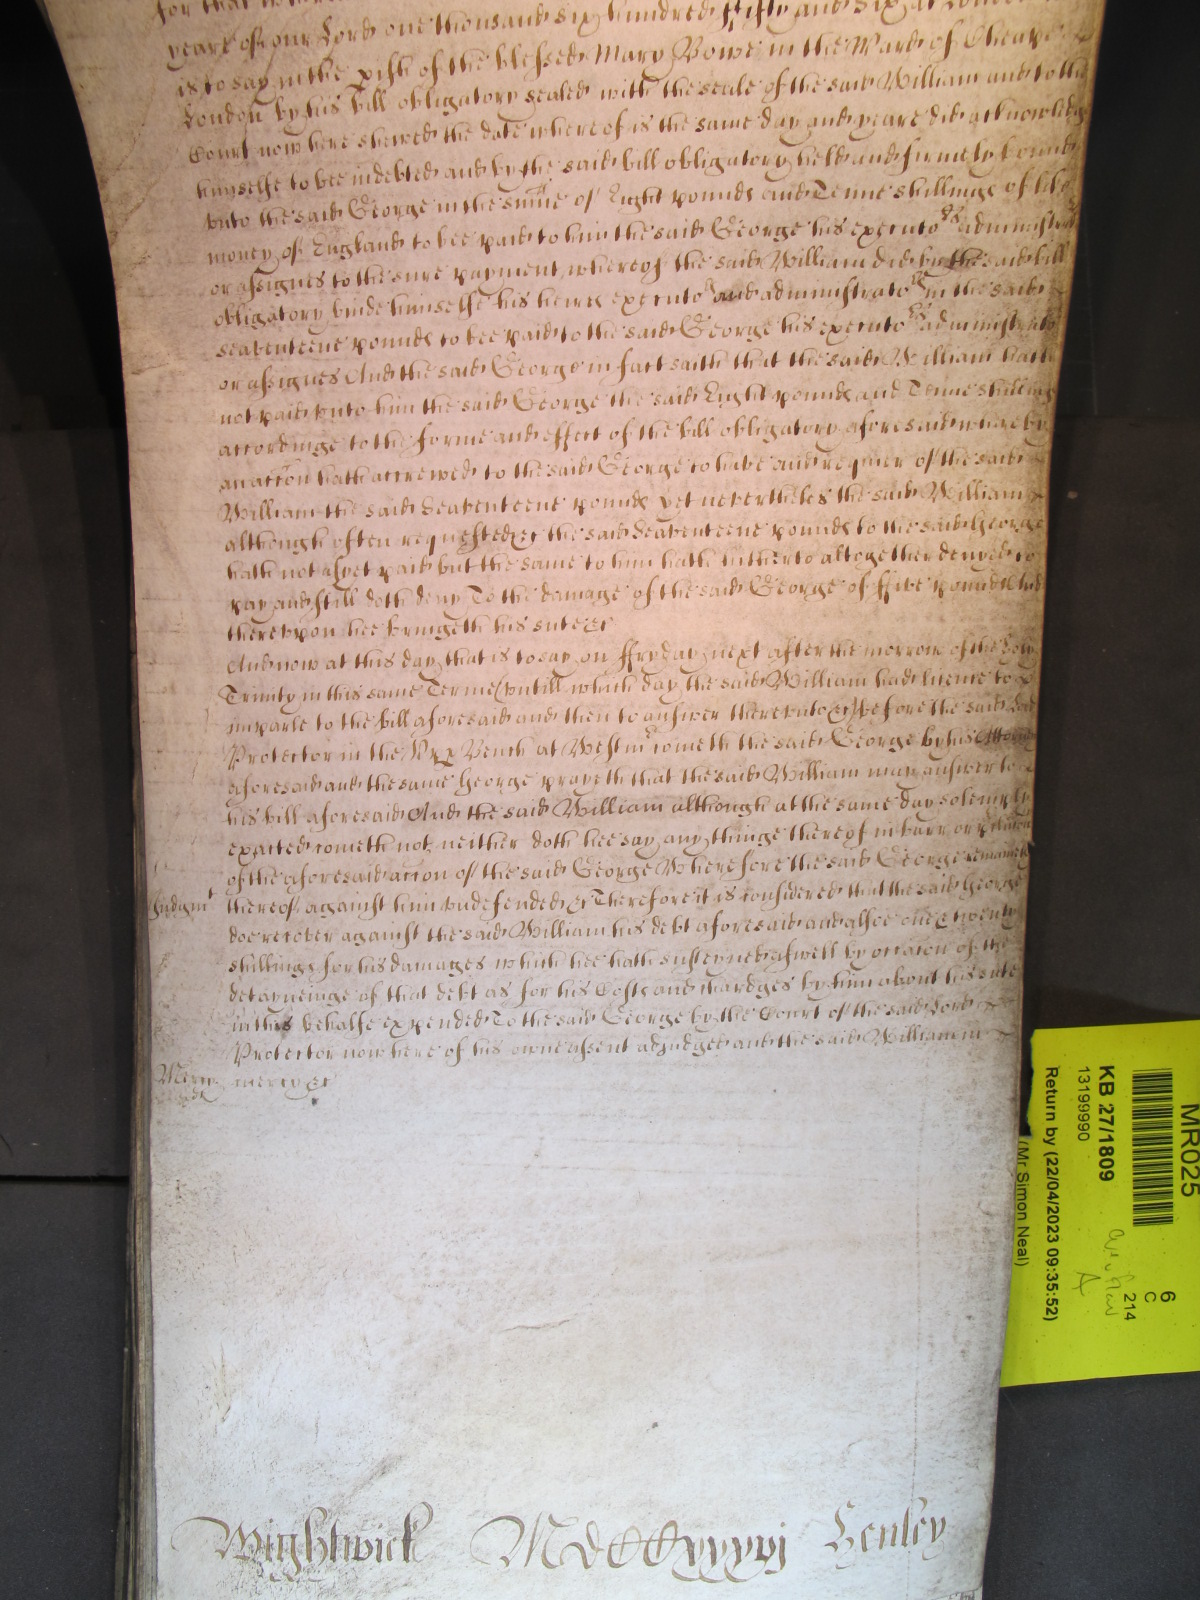 for that
yeare of our Lord one thousand six hundred fifty and six at London
is to say in the pish of the blessed Mary Bowe in the Ward of Cheape
London by his bill obligatory sealed with the seale of the said William and to the
Court now here shewed the date whereof is the same day and yeare did acknowledge
himselfe to bee indebted and by the said bill obligatory held and firmely bound
vnto the said George in the sume of Eight pounds and Tenne shillings of like
money of England to bee paid to him the said George his executors administrat
or assignes to the sure payment whereof the said William did by the said bill
obligatory binde himselfe his heires executors and administrators in the said
seaventeene pounds to bee paid to the said George his executors administrators
or assignes And the said George in fact saith that the said William hath
not paid vnto him the said George the said Eight pounds and Tenne shillings
accordinge to the forme and effect of the bill obligatory aforesaid whereby
an accon hath accrewed to the said George to have and require of the said
William the said Seaventeene pounds yet nevertheles the said William
although often requested &c the said seaventeene pounds to the said George
hath not as yet paid but the same to him hath hitherto altogether denyed to
pay and still doth deny To the damage of the said George of ffive pounds And
therevpon hee bringeth his sute &c
And now at this day that is to say on ffryday next after the morrow of the holy
Trinity in this same Terme (vntill which day the said William had licence to
imparle to the bill aforesaid and then to answer therevnto &c) before the said Lord
Protector in the Vpp Bench at Westm cometh the said George by his Attorny
aforesaid and the same George prayeth that the said William may answer to
his bill aforesaid And the said William although at the same day solemply
exacted cometh not neither doth hee say any thinge thereof in barr or
of the aforesaid accon of the said George Wherefore the said George remaineth
thereof against him vndefended &c Therefore it is considered that the said George
Iudgmt
doe recover against the said William his debt aforesaid and alsoe one & twenty
shillings for his damages which hee hath susteyned aswell by occasion of the
detayneinge of that debt as for his Costs and chardges by him about his sute
in this behalfe expended To the said George by the Court of the said Lord
Protector now here of his owne assent adjudged and the said William in
Mercy
mercy &c
Wightwick MdCCCxxxvj Henley
MR025
6
C
214
KB 27/1809
13199990
Return by (22/04/2023 09:35:52)
(Mr Simon Neal)